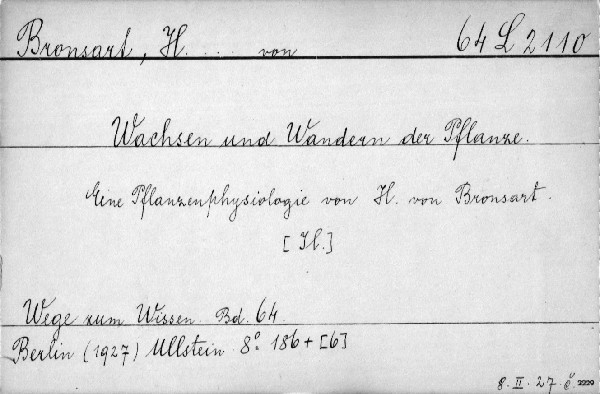 Bronsart, H. .... von 64 L 2110
Wachsen und Wandern der Pflanze.
Eine Pflanzenphysiologie von H. von Bronsart.
[Il.]
Wege zum Wissen Bd. 64.
Berlin (1927) Ullstein 8° 186+[6]
8. II. 27. č. 2220